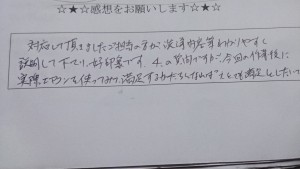 ☆★☆感想をお願いします☆★☆
対応して頂きましたご担当の方が洗浄内容等わかりやすく
説明して下さり、好印象です。4.の質問ですが、今回の作業後に
実際エアコンを使ってみて、満足するかたちならば とても満足としたいで